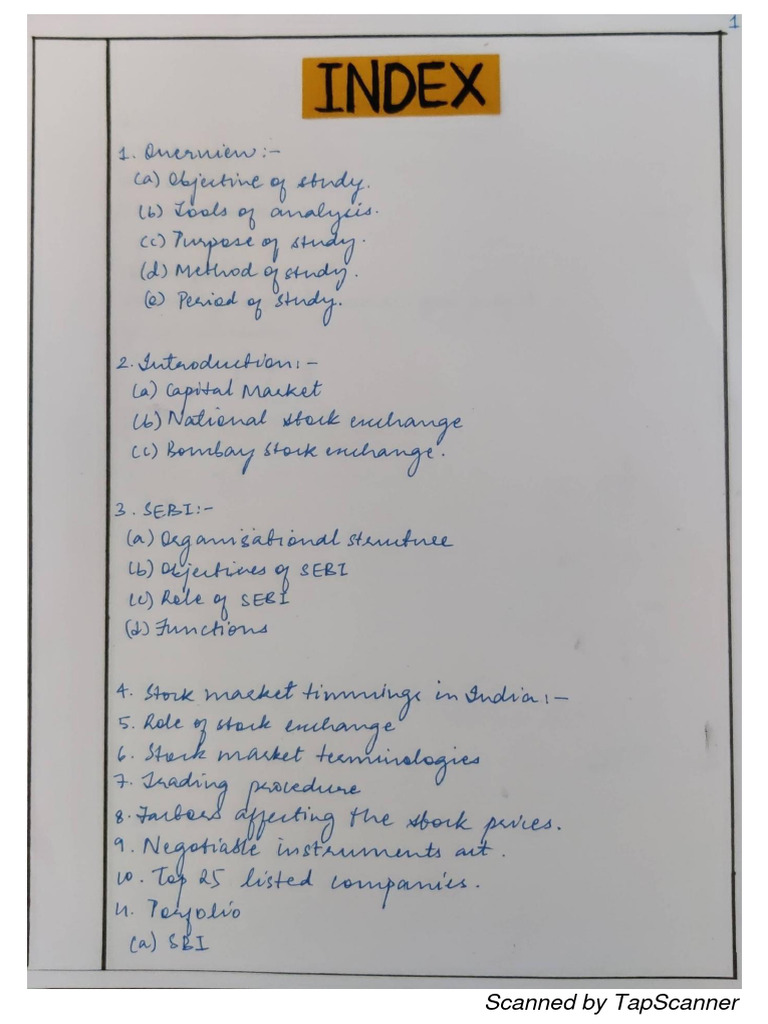 1
INDEX
1. Overview:-
(a) Objective of study.
(b) Tools of analysis.
(c) Purpose of study.
(d) Method of study.
(e) Period of study.
2. Introduction:-
(a) Capital Market
(b) National stock exchange
(c) Bombay stock exchange.
3. SEBI:-
(a) Organisational structure
(b) Objectives of SEBI
(c) Role of SEBI
(d) Functions
4. Stock market timmings in India:-
5. Role of stock exchange
6. Stock market terminologies
7. Trading procedure
8. Factors affecting the stock prices.
9. Negotiable instruments act.
10. Top 25 listed companies.
11. Porfolio
(a) SBI
Scanned by TapScanner